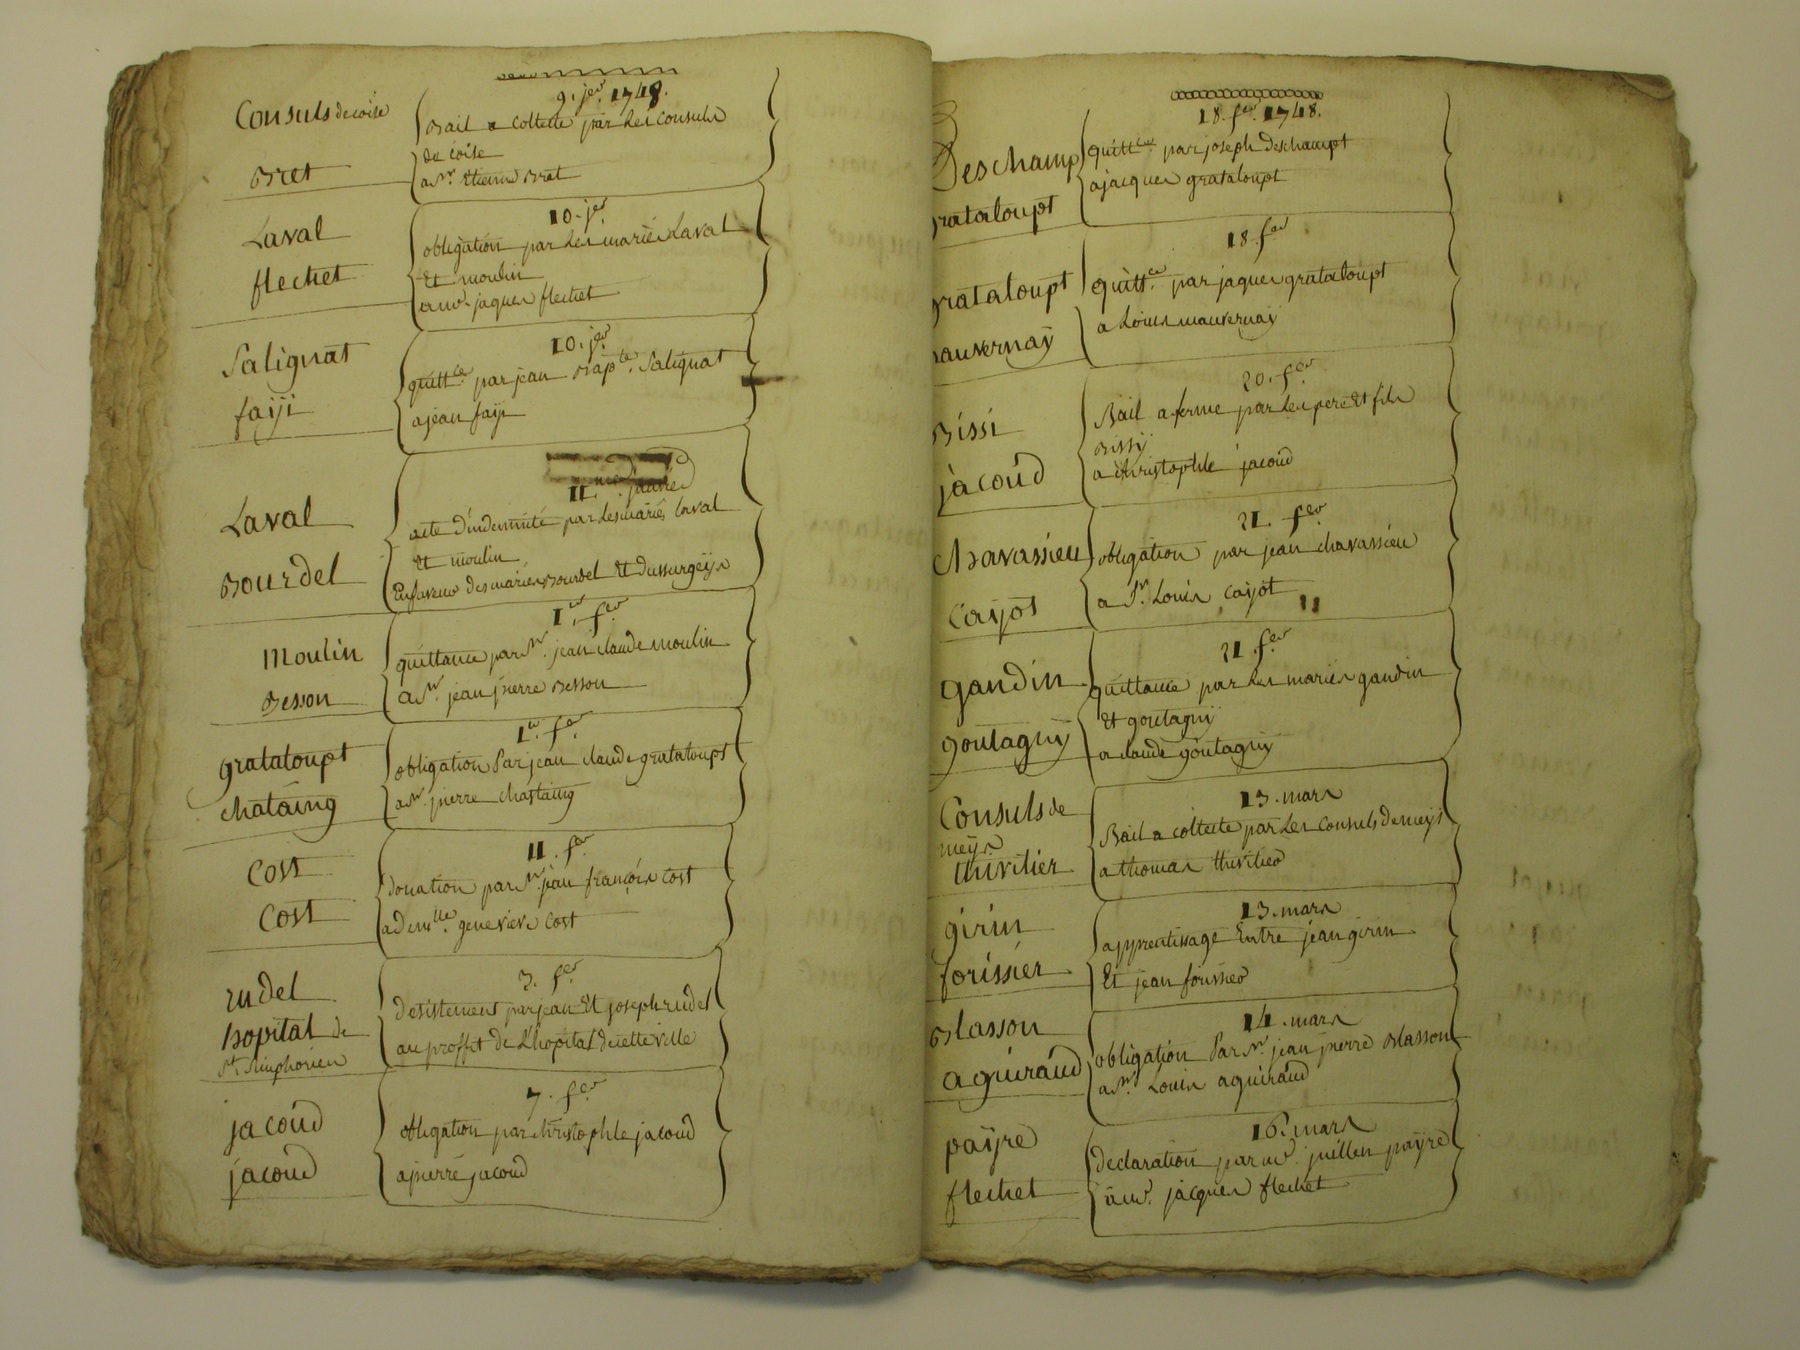 9. jer. 1748.
Consuls de coise
Bail a collecte par les consuls
de coise
Bret
a Sr. Etienne Bret
10. jer
Laval
obligation par les mariés Laval
flechet
Et moulin
a mr. jaques flechet
10. jer
Salignat
quittce par jean Bapte. Salignat
faiji
a jean faiji
11. janvier
Laval
acte d'indemnité par les mariés laval
Et moulin
Bourdel
En faveur des mariés Bourdel Et dussurgeÿs
1er. fer
Moulin
quittance par Sr. jean claude moulin
Besson
a Sr. jean pierre Besson
1er. fer
grataloupt
obligation Par jean claude grataloupt
chataing
a Sr. pierre chastaing
11. fer
Cost
donation par Sr. jean françois Cost
Cost
a demlle. genevieve Cost
3. fer
rudel
desistement par jean Et joseph rudel
hopital de
au proffit de L'hopital de cette ville
St. Simphorien
7. fer
jacoud
obligation par christophle jacoud
jacoud
a pierre jacoud
18. fer. 1748.
Deschamp
quittce par joseph deschampt
grataloupt
a jacques grataloupt
18. fer
grataloupt
quittce. par jaques grataloupt
mauvernaÿ
a Louis mauvernaÿ
20. fer
Bissi
Bail a ferme par les pere Et fils
Bissÿ
jacoud
a christophle jacoud
21. fer
Chavassieu
obligation par jean chavassieu
Caÿot
a Sr. Louis caÿot
21. fer
gandin
quittance par les mariés gandin
Et goutagnÿ
goutagnÿ
a claude goutagnÿ
13. mars
Consuls de
Bail a collecte par les Consuls de meÿs
meÿs
thivilier
a thomas thivilier
13. mars
girin
apprentissage Entre jean girin
forissier
Et jean forissier
14. mars
Blasson
obligation Par Sr. jean pierre Blasson
aguiraud
a Sr. Louis aguiraud
16. mars
païre
declaration par mr. juillen païre
flechet
a mr. jacques flechet